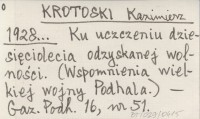 KROTOSKI Kazimierz
1928... Ku uczczeniu dzie-
sięciolecia odzyskanej wol-
ności. (Wspomnienia wiel-
kiej wojny Podhala.) —
Gaz. Podh. 16, nr 51.